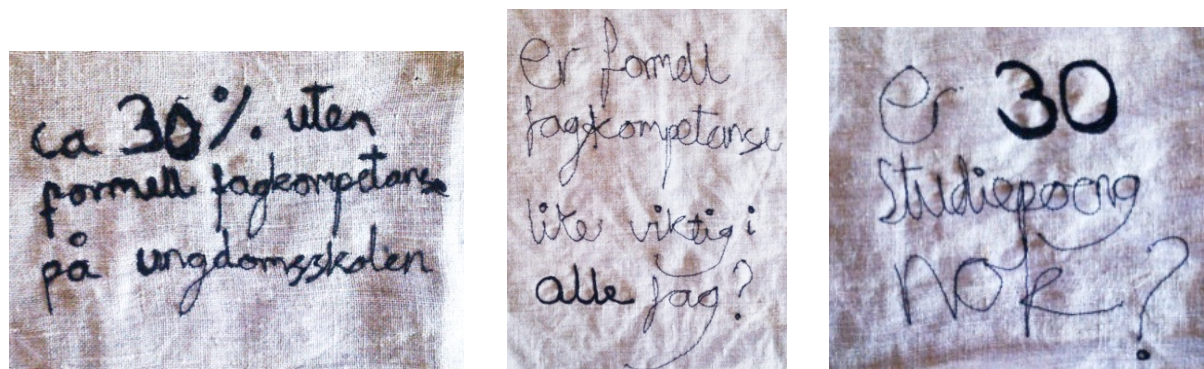 ca 30% uten
formell fagkompetanse
på ungdomsskolen
er formell
fagkompetanse
lite viktig i
alle fag?
er 30
studiepoeng
nok?